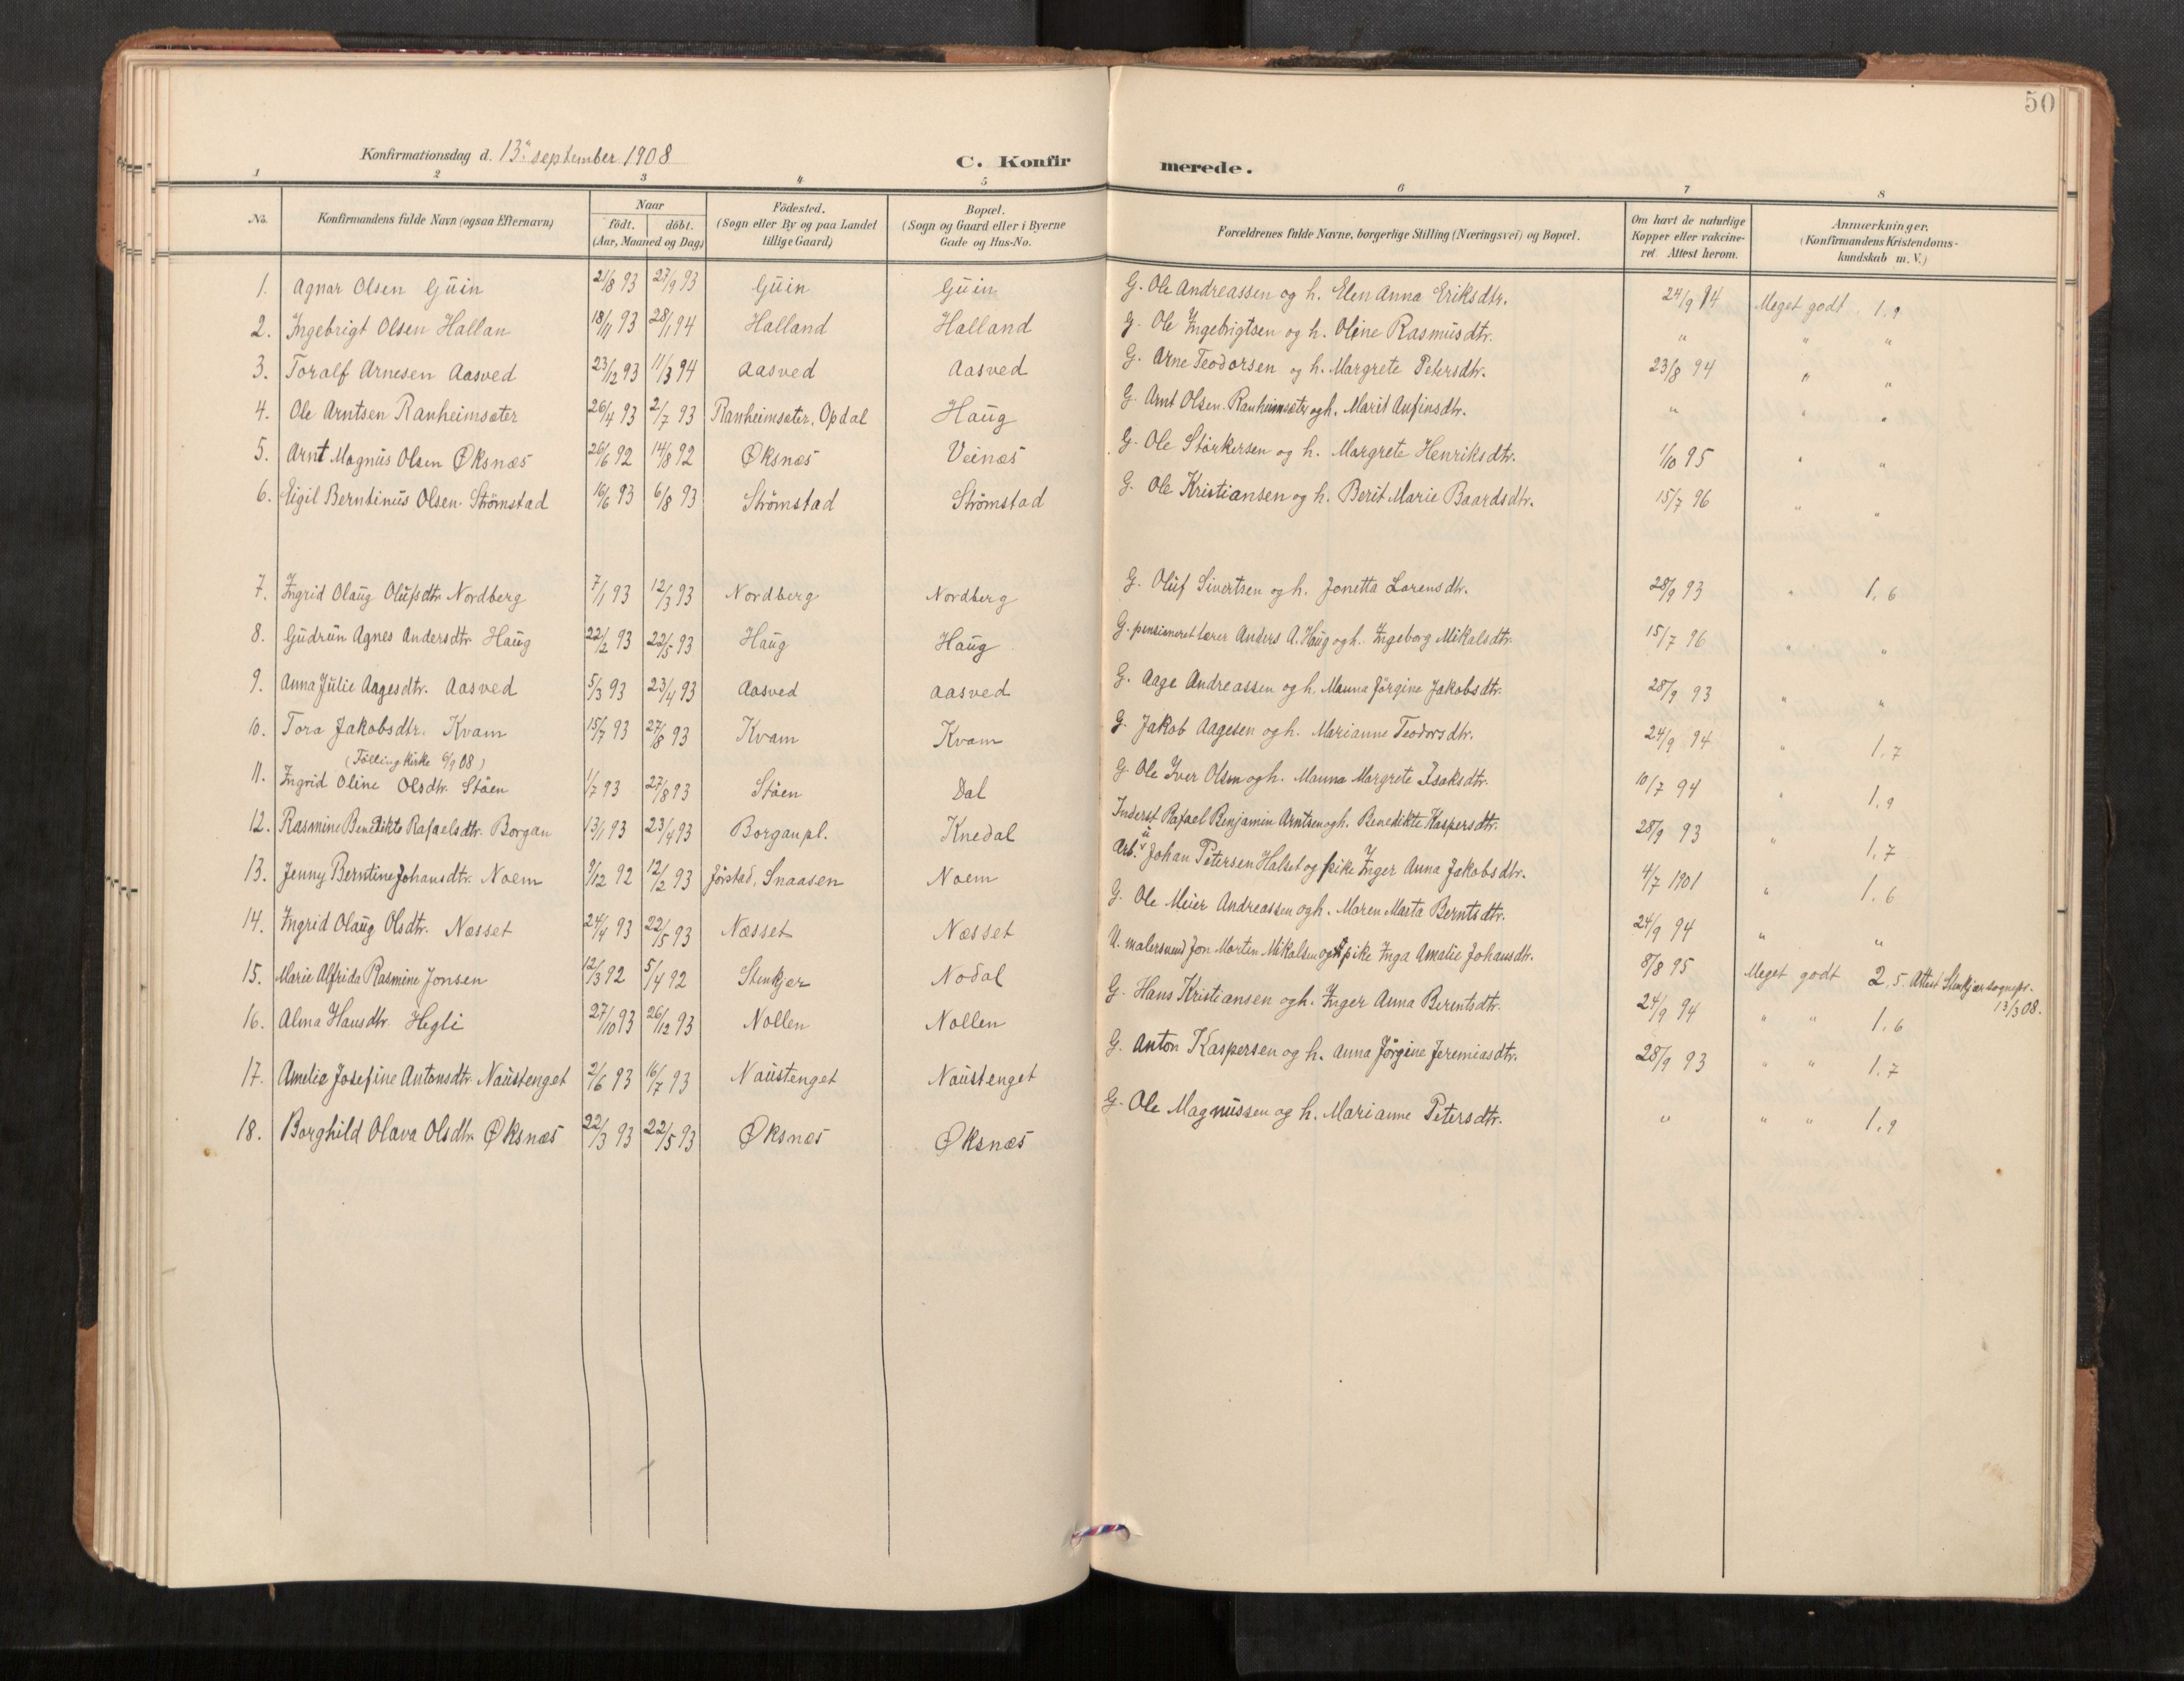 50
Konfirmationsdag d. 13. september 1908
C. Konfirmerede.
1 2 3 4 5 6 7 8
No. Konfirmandens fulde Navn (ogsaa Efternavn) Naar født. døbt. (Aar, Maaned og Dag) Födested. (Sogn eller By og paa Landet tillige Gaard) Bopæl. (Sogn og Gaard eller i Byerne Gade og Hus-No. Forældrenes fulde Navne, borgerlige Stilling (Næringsvei) og Bopæl. Om havt de naturlige Kopper eller vakcineret. Attest herom. Anmærkninger. (Konfirmandens Kristendomskundskab m. V.)
1. Agnar Olsen Guin 21/8 93 27/9 93 Guin Guin G. Ole Andreassen og h. Elen Anna Eriksdtr. 24/9 94 Meget godt 1.9
2. Ingebrigt Olsen Hallan 18/11 93 28/1 94 Halland Halland G. Ole Ingebrigtsen og h. Oline Rasmusdtr. " " "
3. Toralf Arnesen Aasved 23/12 93 11/3 94 Aasved Aasved G. Arne Teodorsen og h. Margrete Petersdtr. 23/8 94 " "
4. Ole Arntsen Ranheimsæter 26/4 93 2/7 93 Ranheimsæter, Opdal Haug G. Arnt Olsen Ranheimsæter og h. Marit Anfinsdtr. " " "
5. Arnt Magnus Olsen Øksnes 26/6 92 14/8 92 Øksnes Veines G. Ole Størkersen og h. Margrete Henriksdtr. 1/10 95 " "
6. Eigil Berntinus Olsen Strömstad 16/6 93 6/8 93 Strömstad Strömstad G. Ole Kristiansen og h. Berit Marie Baardsdtr. 15/7 96 " "
7. Ingrid Olaug Olufsdtr. Nordberg 7/1 93 12/3 93 Nordberg Nordberg G. Oluf Sivertsen og h. Jonetta Lorensdtr. 28/9 93 " 1.6
8. Gudrun Agnes Andersdtr. Haug 22/2 93 22/5 93 Haug Haug G. pensioneret lærer Anders A. Haug og h. Ingeborg Mikalsdtr. 15/7 96 " "
9. Anna Julie Aagesdtr. Aasved 5/3 93 23/4 93 Aasved Aasved G. Aage Andreassen og h. Manna Jörgine Jakobsdtr. 28/9 93 " "
10. Tora Jakobsdtr. Kvam 15/7 93 27/8 93 Kvam Kvam G. Jakob Aagesen og h. Marianne Teodorsdtr. 24/9 94 " 1.7
(Følling kirke 6/9 08)
11. Ingrid Oline Olsdtr. Støen 1/7 93 27/8 93 Støen Dal G. Ole Iver Olsen og h. Manna Margrete Isaksdtr. 10/7 94 " 1.9
12. Rasmine Benedikte Rafaelsdtr. Borgan 13/1 93 23/4 93 Borgan pl. Knedal Inderst Rafael Benjamin Arntsen og h. Benedikte Kaspersdtr. 28/9 93 " 1.7
13. Jenny Berntine Johansdtr. Noem 9/12 92 12/2 93 Jørstad, Snaasen Noem Arb. Johan Petersen Halset og pike Inger Anna Jakobsdtr. 4/7 1901 " 1.6
14. Ingrid Olaug Olsdtr. Nesset 24/4 93 22/5 93 Nesset Nesset G. Ole Meier Andreassen og h. Maren Marta Berntsdtr. 24/9 94 " "
15. Marie Alfrida Rasmine Jonsen 12/3 92 5/4 92 Stenkjer Nodal U. malersvend Jon Morten Mikalsen og pike Inga Amalie Johansdtr. 8/8 95 Meget godt 2.5. Attest Stenkjær sognepr. 13/3 08.
16. Alma Hansdtr. Hegli 27/10 93 26/12 93 Nollen Nollen G. Hans Kristiansen og h. Inger Anna Berentsdtr. 24/9 94 " " 1.6
17. Amelie Josefine Antonsdtr. Naustenget 2/6 93 16/7 93 Naustenget Naustenget G. Anton Kaspersen og h. Anna Jörgine Jeremiasdtr. 28/9 93 " " 1.7
18. Borghild Olava Olsdtr. Øksnes 22/3 93 22/5 93 Øksnes Øksnes G. Ole Magnussen og h. Marianne Petersdtr. " " " 1.9